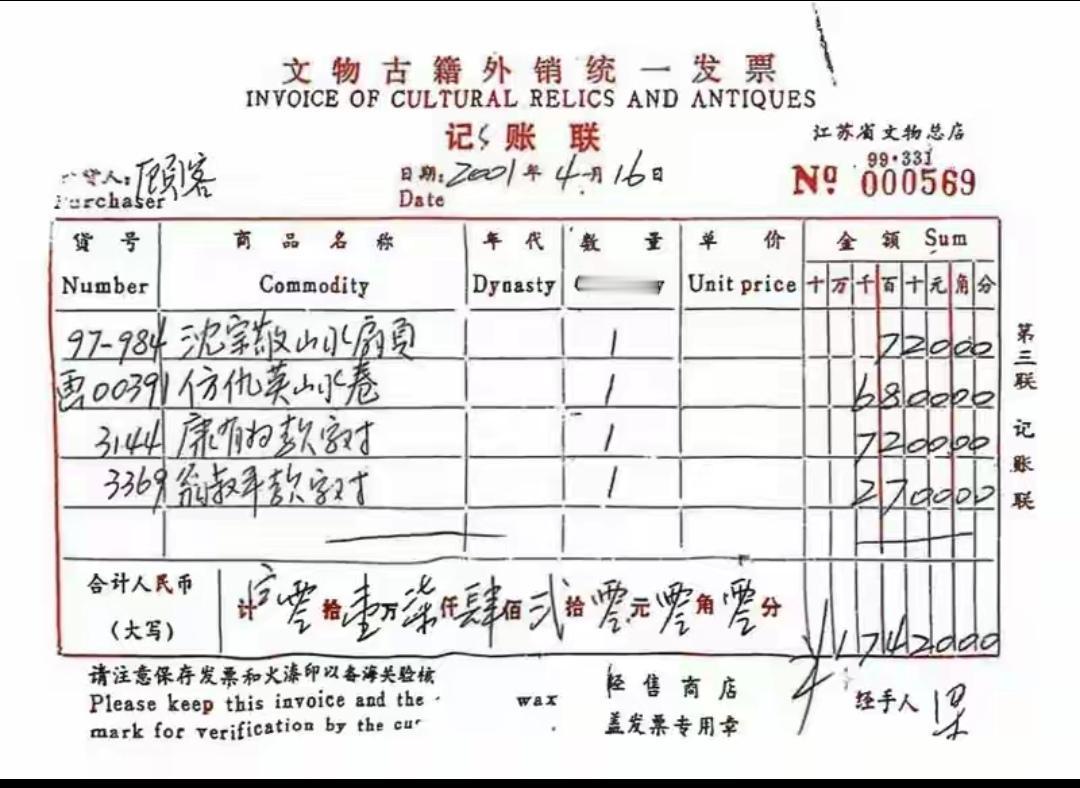 文物古籍外销统一发票
INVOICE OF CULTURAL RELICS AND ANTIQUES
记账联
江苏省文物总店
货人:顾客
Purchaser
日期:2001年4月16日
Date
99·331
Nº 000569
货号 商品名称 年代 数量 单价 金额 Sum
Number Commodity Dynasty Unit price 十万千百十元角分
97-984 沈宗敬山水扇页 1 72000
雲00391 仿仇英山水卷 1 680000
3144 康有为款字对 1 720000
3369 翁叔平款字对 1 270000
合计人民币
(大写)
计 零拾壹万柒仟肆佰弍拾零元零角零分
¥1742000
请注意保存发票和火漆印以备海关验核
Please keep this invoice and the wax
mark for verification by the
经售商店
盖发票专用章
经手人 梁
第三联 记账联